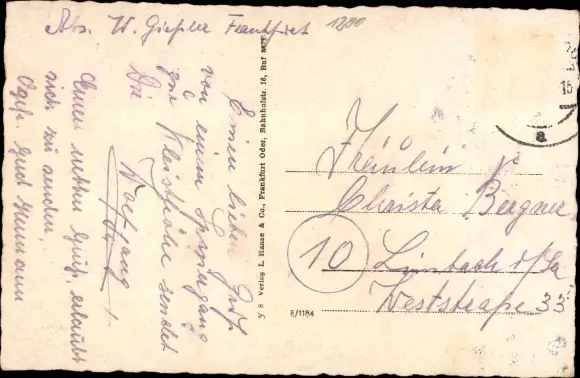 Abs. W. Gießler Frankfurt
1200
Einen lieben Gruß
von einem Spaziergang
zur Kleisthöhe sendet
Dir
Wolfgang
Einen netten Gruß, erlaubt
sich zu senden,
Y 8 Verlag L. Haase & Co., Frankfurt Oder, Bahnhofstr. 16, Ruf
E/1184
15
a
Fräulein
Christa Bergner
10
Limbach i/Sa
Weststraße 33